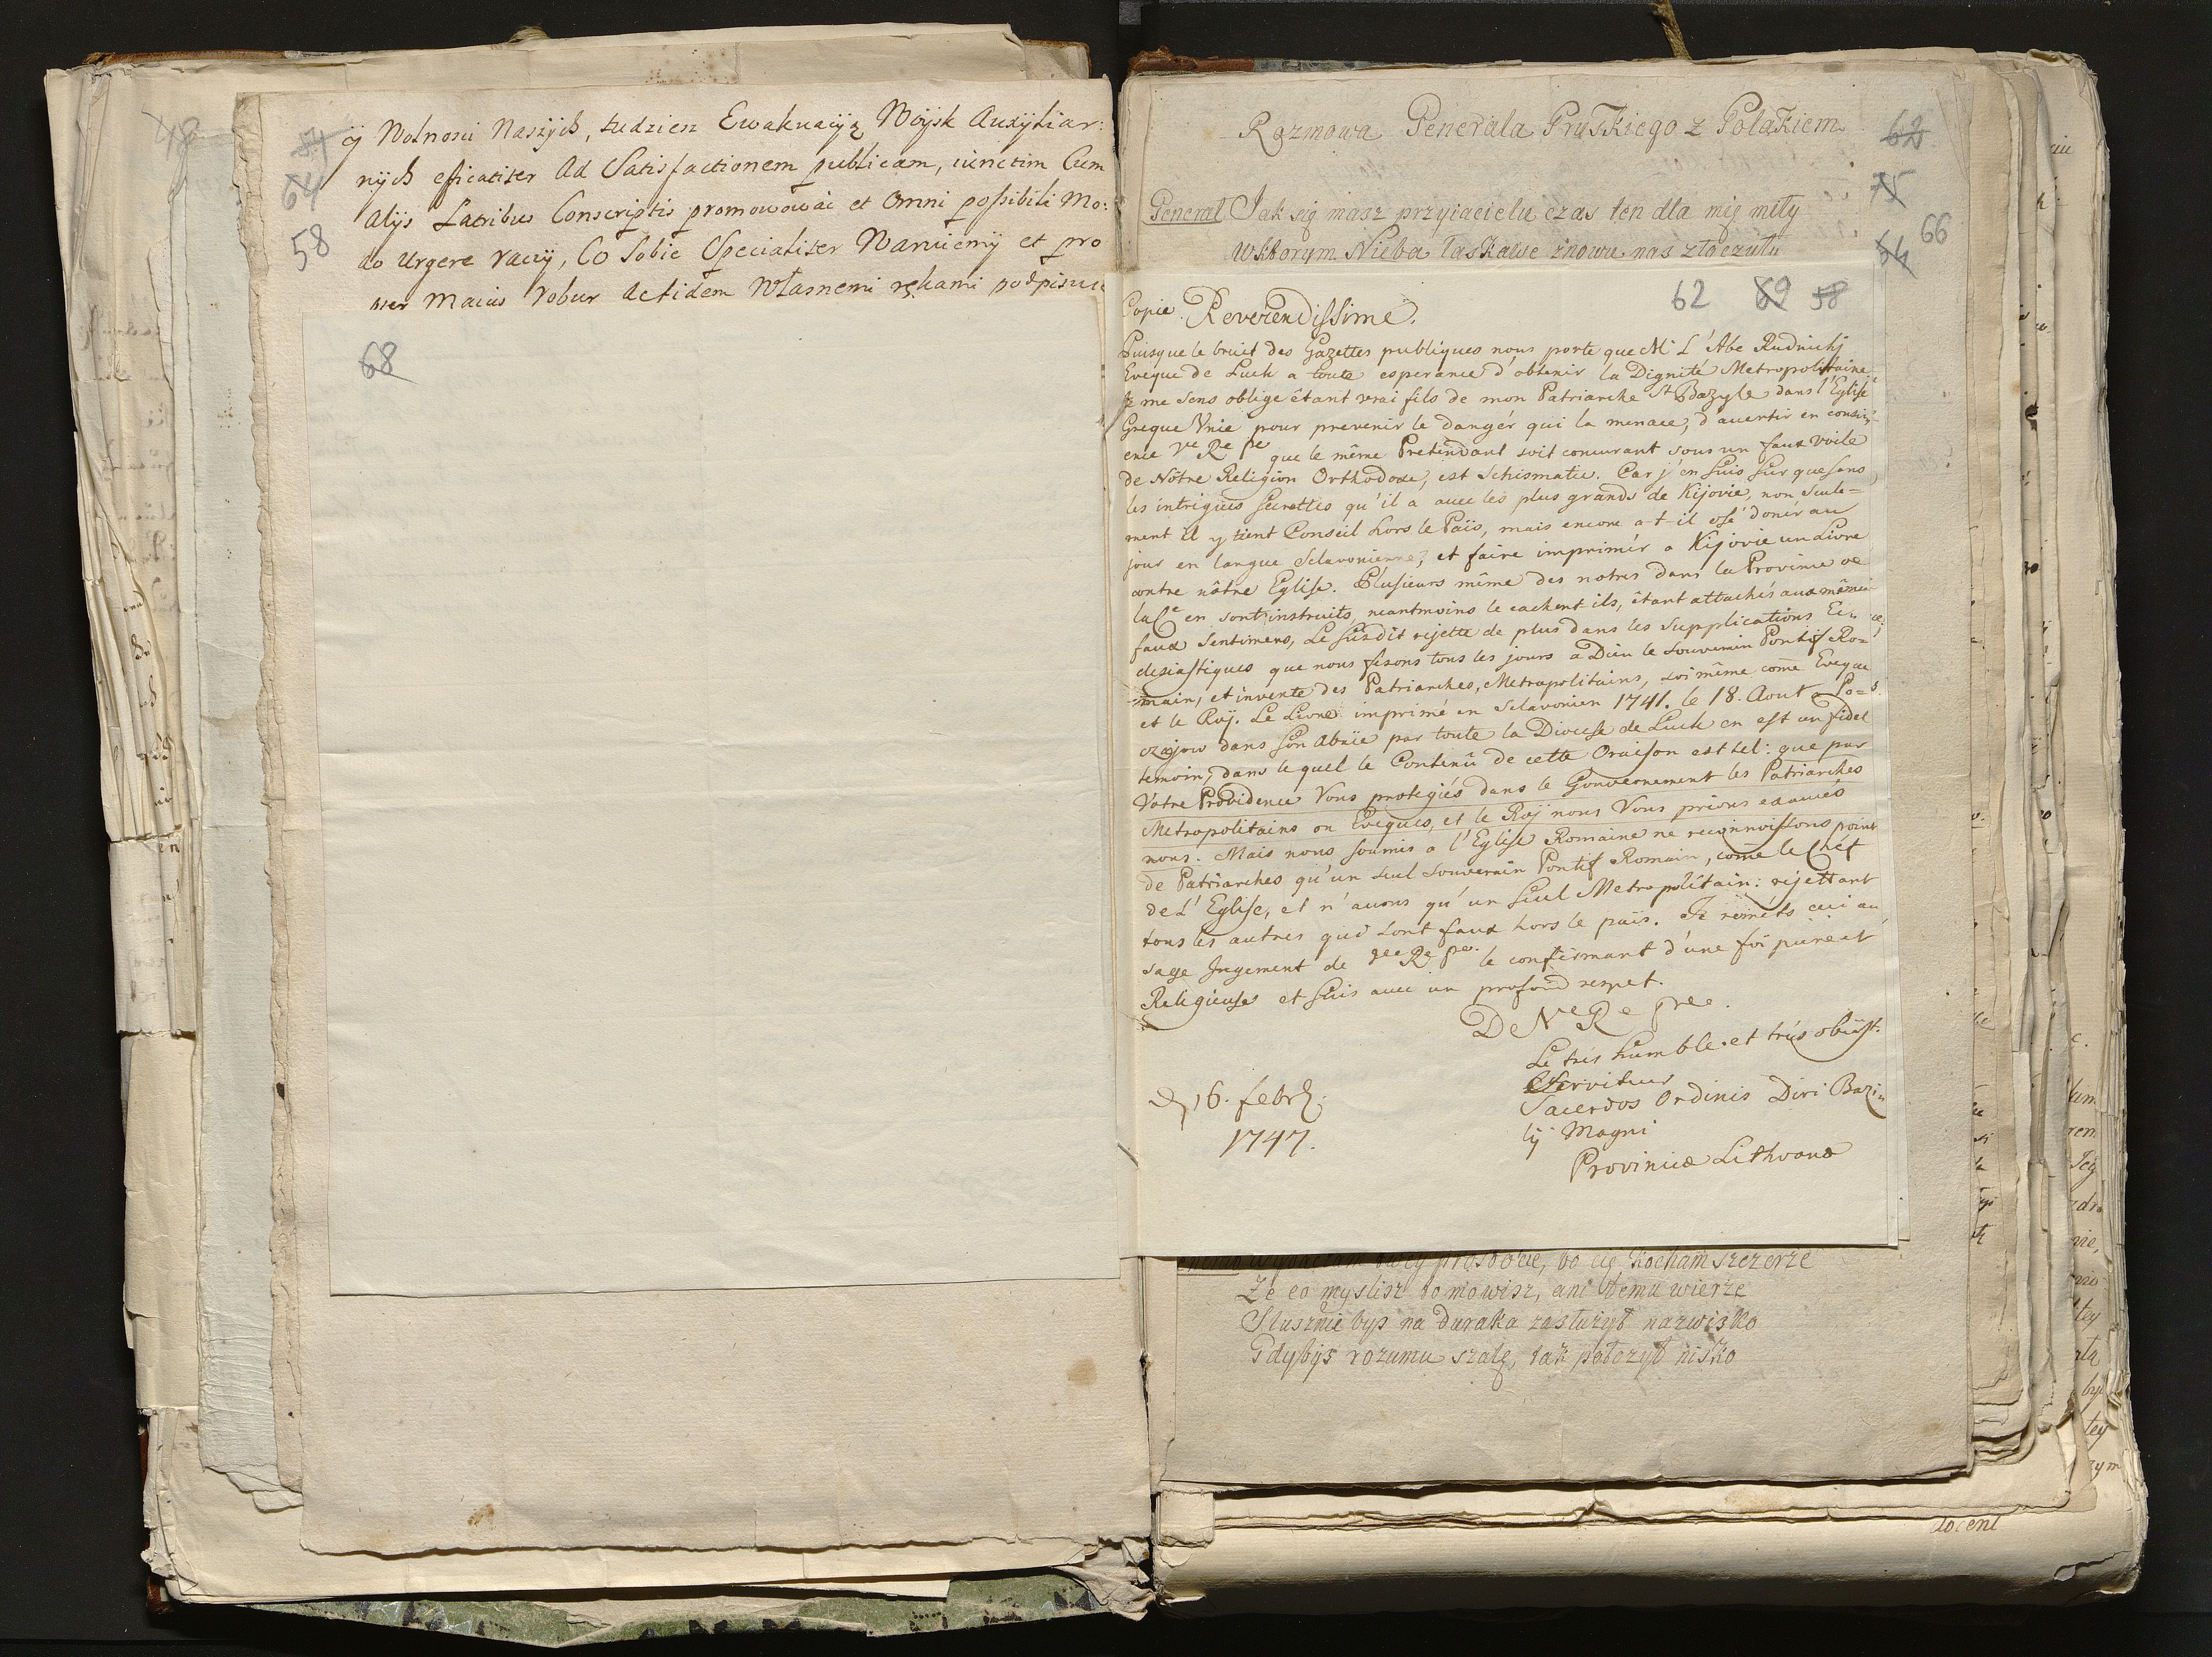 48
54
64
58
ÿ Wolnosci Naszÿch, tudziesz Ewakuacÿą Woÿsk Auxÿliar:
nÿch efficatiter Ad Satisfactionem publicam, iunctim Cum
Alÿs Patribus Conscriptis promowować et Omni possibili Mo:
do Urgere racÿ, Co Sobie Specialiter Waruiemÿ et pro
Maius robur Actidem Własnemi rękami podpisui
68
Rozmowa Generała Pruskiego z Polakiem
62
75
66
54
Generał Jak się masz przyiacielu czas ten dla mię miły
Wktorym Nieba łaskawe znowu nas złączyły
62 69 58
Copie. Reverendissime.
Puisque le bruit des Gazettes publiques nous porte que Mr L'Abe Rudnickj
Eveque de Luck a toute esperance d'obtenir la Dignité Metropolitaine
je me sens oblige êtant vrai fils de mon Patriarche St Bazyle dans l'Eglise
Greque Unie pour prevenir le dangér qui la menace, d'avertir en consci=
ence Vre Re Pce que le même Pretendant soit concurant sous un faux voile
de Nôtre Religion Orthodoxe, est Schismatic. Car j'en suis sur que sans
les intrigues secrettes qu'il a avec les plus grands de Kijovie, non seule=
ment il y tient Conseil hors le Païs, mais encore a-t-il osé donér au
jour en langue Sclavonienne, et faire imprimér a Kijovie un Livre
contre nôtre Eglise. Plusieurs même des notres dans la Province de
la Ce en sont instruits, neantmoins le cachent ils, êtant attachés aux mêmes
faux Sentimens, Le Susdit rejette de plus dans les Supplications Ec=
clesiastiques que nous fesons tous les jours a Dieu le Souverain Pontif Ro=
main, et invente des Patriarches, Metropolitains, soi même come Eveque
et le Roÿ. Le Livre imprimé en Sclavonien 1741. le 18. Aout a Po=
czajow dans son Abaïe par toute la Diocese de Luck en est un fidel
temoin, dans lequel le Contenû de cette Oraison est tel: que par
Votre Providence Vous protegiés dans le Gouvernement les Patriarches
Metropolitains ou Eveques, et le Roÿ nous Vous prions exaucés
nous. Mais nous soumis a l'Eglise Romaine ne reconnoissons point
de Patriarches qu'un seul Souverain Pontif Romain, come le Chéf
de L'Eglise, et n'avons qu'un seul Metropolitain: rejettant
tous les autres qui sont faux hors le païs. Je reméts ceci au
sage Jugement de Vre Re Pce le confirmant d'une foi pure et
Religieuse et suis avec un profond respet.
De Vre Re Pce.
Le tres humble et trés obeïst.
Serviteur
Sacerdos Ordinis Divi Bazi=
lÿ Magni
Provinciæ Lithvanæ
D. 16. febr.
1747.
prostocie, bo cię kocham szczerze
Ze co myslisz to mowisz, ani temu wierzę
Słusznie bys na duraka zasłużył nazwisko
Gdybys rozumu szalę, tak położył nisko
docent